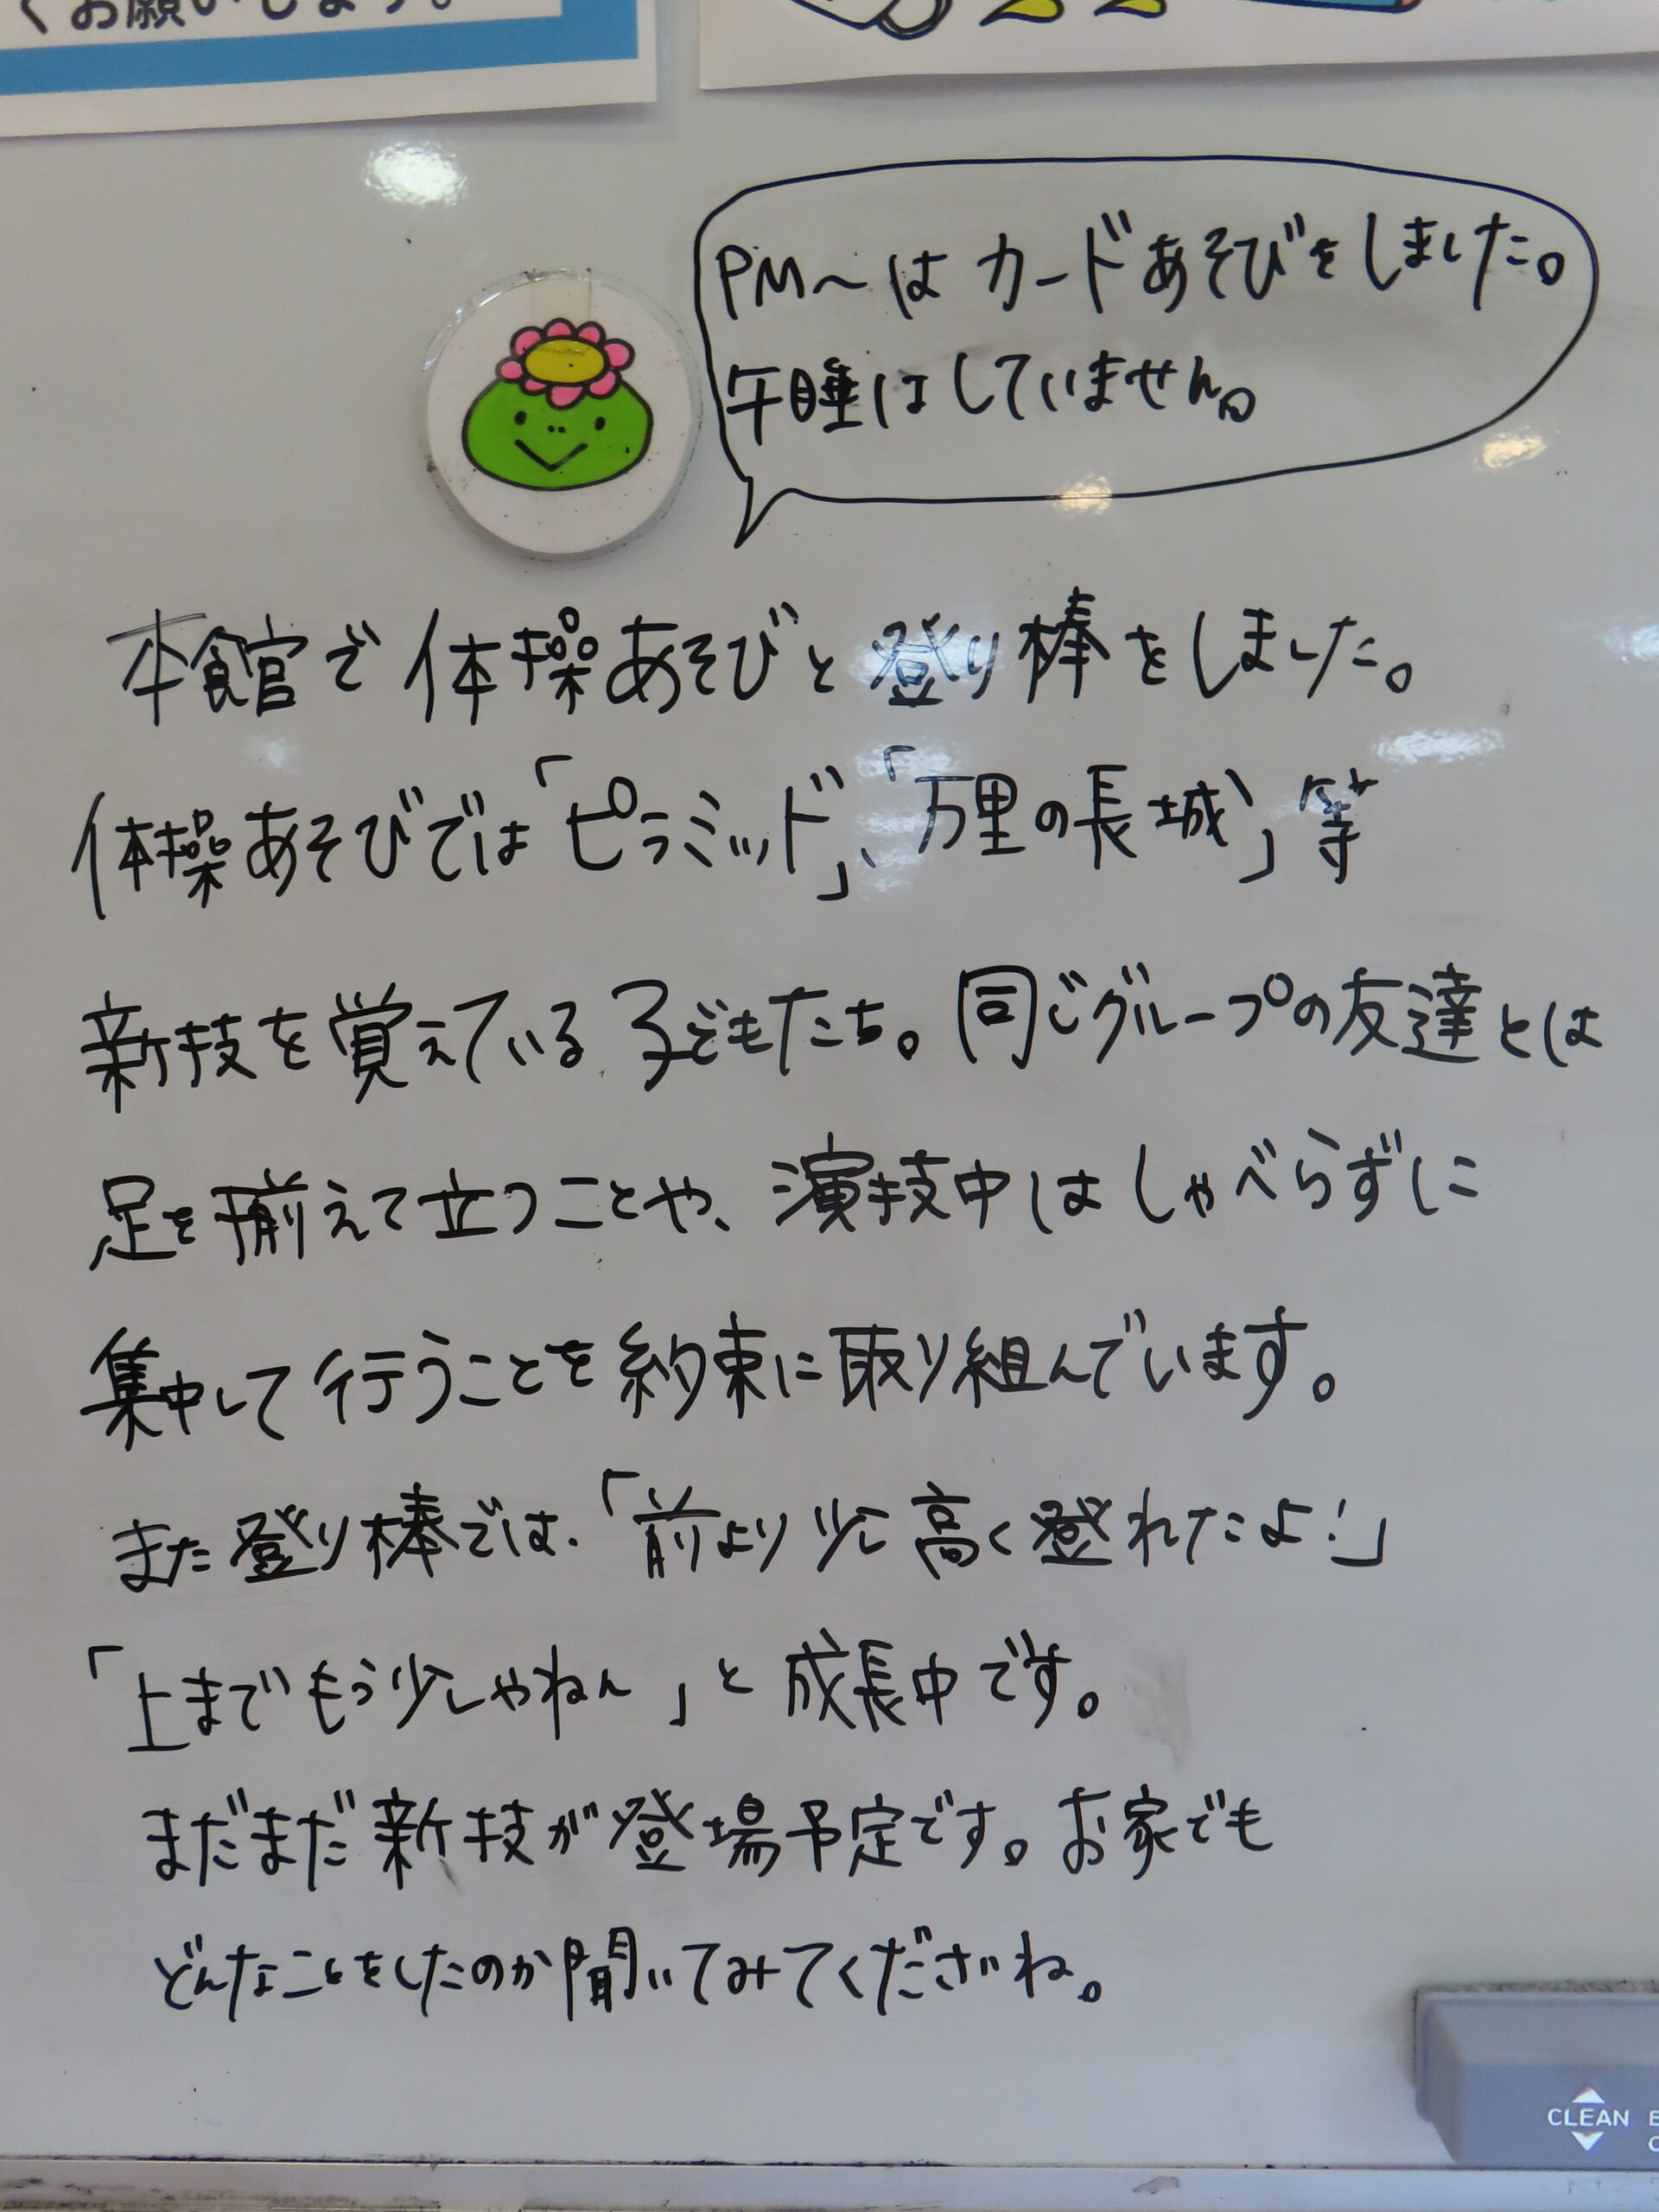 くお願いします。
PM～は カードあそびをしました。
午睡はしていません。
本館で 体操あそびと 登り棒をしました。
体操あそびでは「ピラミッド」、「万里の長城」等
新技を覚えている子どもたち。同じグループの友達とは
足を揃えて立つことや、演技中はしゃべらずに
集中して行うことを約束に取り組んでいます。
また登り棒では、「前より少し高く登れたよ!」
「上までもう少しやねん」と成長中です。
まだまだ新技が登場予定です。お家でも
どんなことをしたのか聞いてみてくださいね。
CLEAN